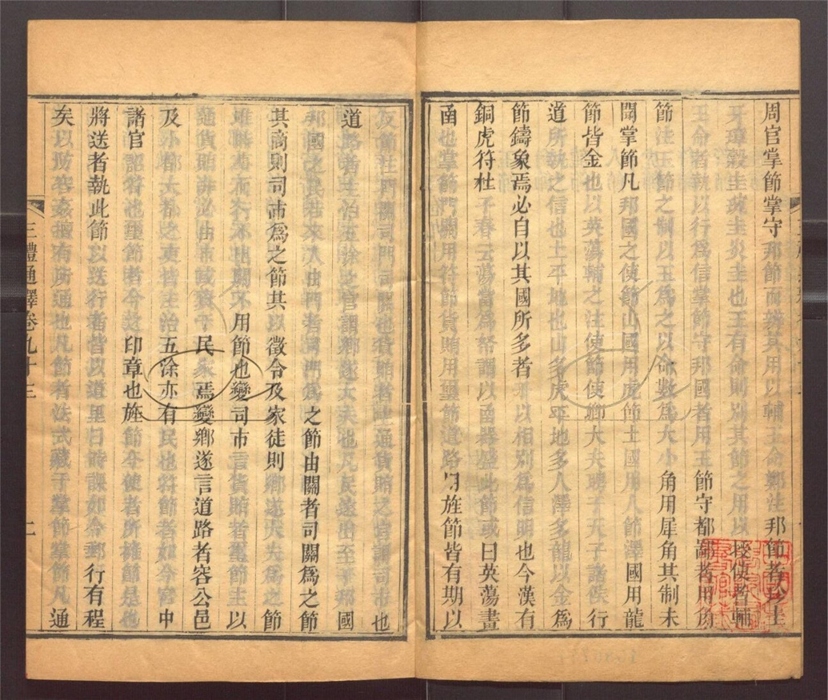 周官掌節掌守邦節而辨其用以輔王命鄭注邦節者珍圭
牙璋穀圭琬圭琰圭也王有命則別其節之用以授使者輔
王命者執以行為信掌節守邦國者用玉節守都鄙者用角
節注玉節之制以玉為之以命數為大小角用犀角其制未
聞掌節凡邦國之使節山國用虎節土國用人節澤國用龍
節皆金也以英蕩輔之注使節使卿大夫聘于天子諸侯行
道所執之信也土平地也山多虎平地多人澤多龍以金為
節鑄象焉必自以其國所多者於以相別為信明也今漢有
銅虎符杜子春云蕩當為帑謂以函器盛此節或曰英蕩畫
函也掌節門關用符節貨賄用璽節道路用旌節皆有期以
三禮通釋卷九十三 二
反節注門關司門司關也貨賄者主通貨賄之官謂司市也
道路者主治五涂之官謂鄉遂大夫也凡民遠出至于邦國
邦國之民若來入由門者司門為之節由關者司關為之節
其商則司市為之節其以徵令及家徒則鄉遂大夫為之節
唯時事而行不出關不用節也變司市言貨賄者璽節主以
通貨賄非必由市或資于民家焉變鄉遂言道路者容公邑
及小都大都之吏皆主治五涂亦有民也符節者如今宮中
諸官詔符也璽節者今之印章也旌節今使者所擁節是也
將送者執此節以送行者皆以道里日時課如今郵行有程
矣以防容姦擅有所通也凡節有法式藏于掌節掌節凡通